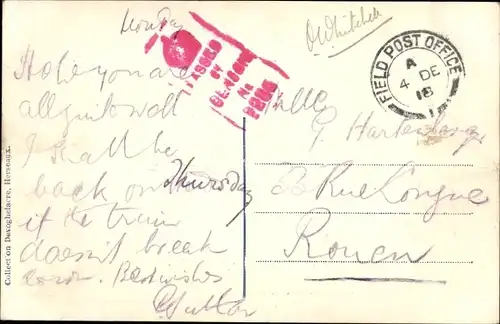 Monday
Hope you are
all quite well
I shall be
back on Thursday
if the train
doesn't break
down. Best wishes
PASSED
BY
CENSOR
No
FIELD POST OFFICE
A
4 DE
18
Mlle
G. Hartenberg
Rue Longue
Rouen
Collect on Dexoghelaere, Herseaux.